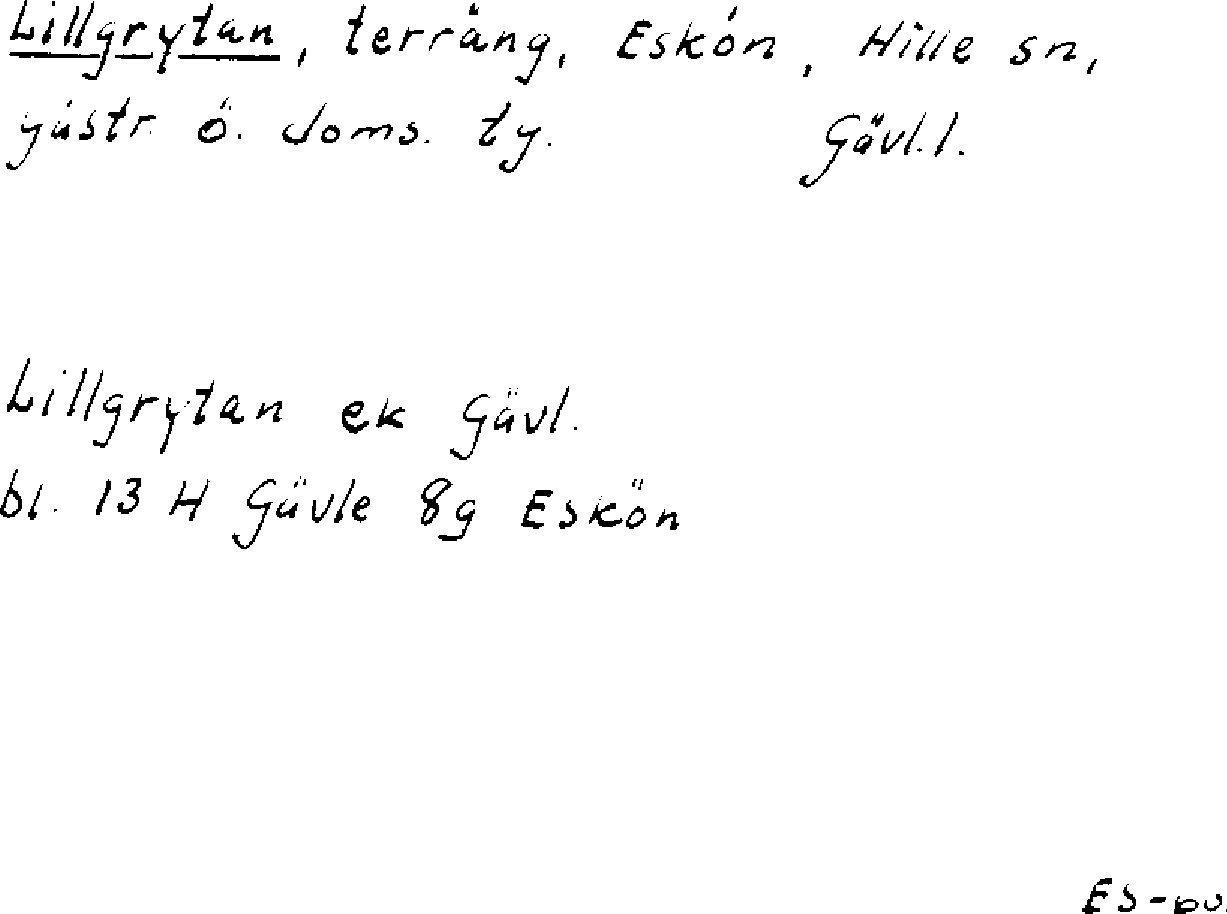 Lillgrytan, terräng, Eskön, Hille sn,
gästr. ö. doms. ty. Gävl.l.
Lillgrytan ek Gävl.
bl. 13 H Gävle 8g Eskön